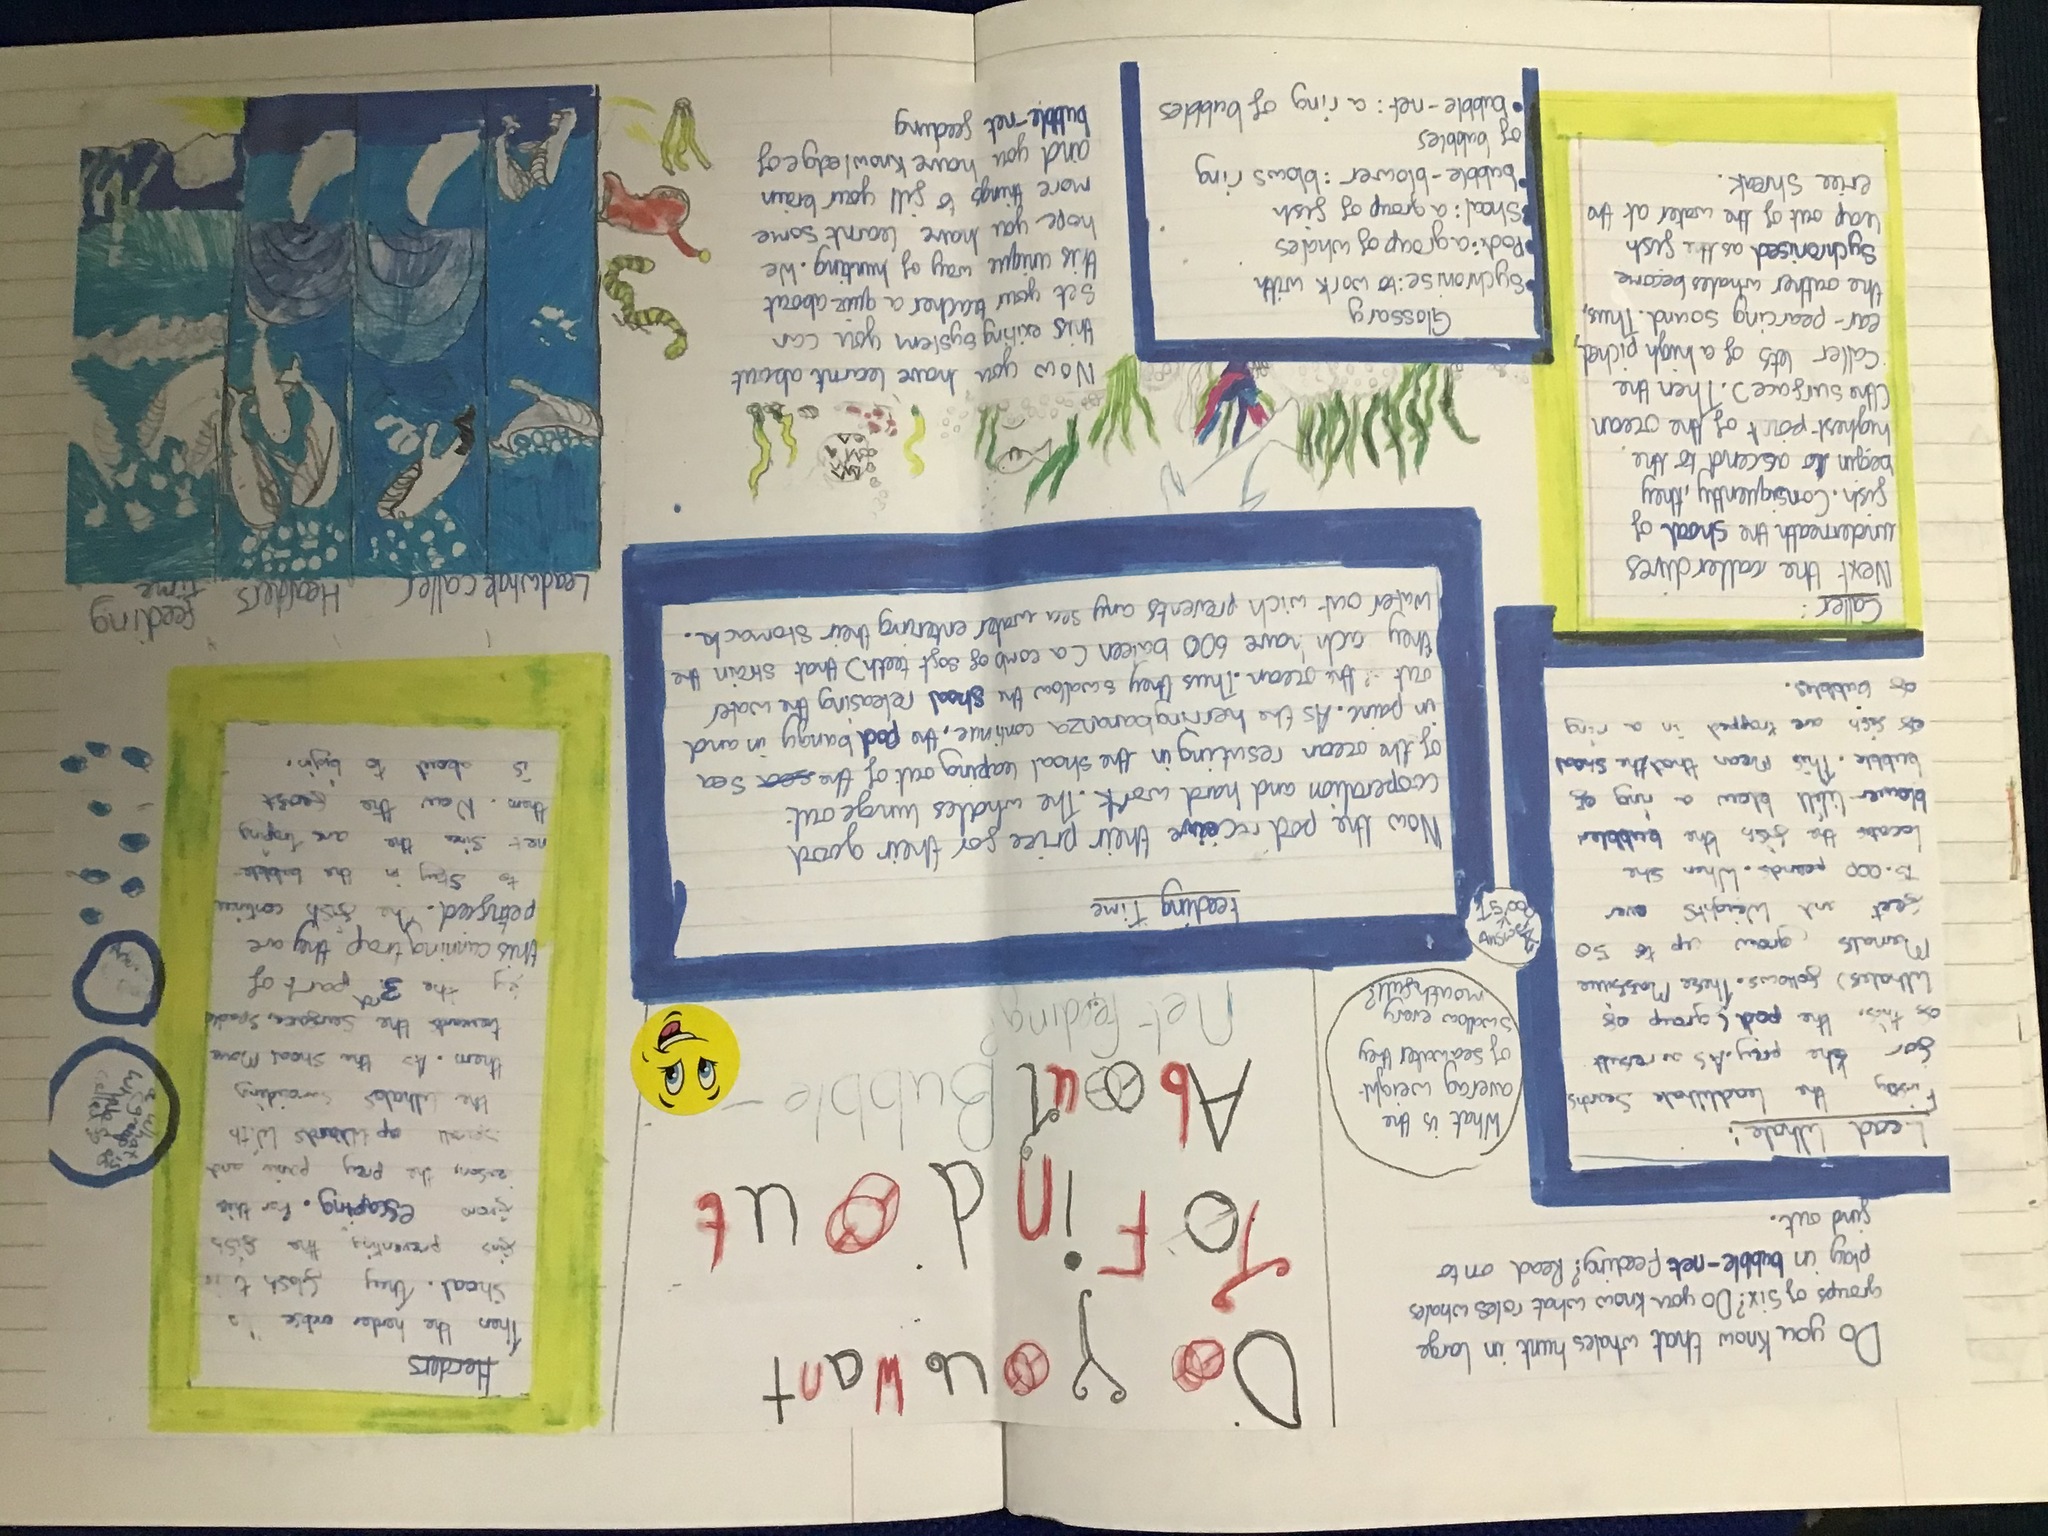 Do you Want
To Find out
About Bubble-
net-feeding?
Do you know that whales hunt in large
groups of six? Do you know what roles whales
play in bubble-net feeding? Read on to
find out.
Lead Whale:
Firsty the leadWhale Searchs
for the prey. As a result
of this, the pod (group of
Whales) follows. These Massive
Mamals grow up to 50
feet and Weights over
pounds. When she
locate the fish the bubble
blower Will blow a ring of
bubble. This Mean that the shoal
of fish are trapped in a ring
of bubbles.
Caller:
Next the caller dives
underneath the shoal of
fish. Consiquently, they
begin to ascend to the
highest-point of the ocean
(the surface). Then the
caller lets of a high piched,
ear-pearcing sound. Thus,
the outher whales become
Sychronised as the fish
leap out of the water at the
eriee shreak.
What is the
averag weight
of seawater they
swallow every
mouthfull?
Feeding Time
Now the pod receive their price for their good
cooperation and hard work. The whales lunge out
of the ocean resulting in the shoal leaping out of the sea
in paine. As the herring bananza continue, the pod bangy in and
out the ocean. Thus they swallow the shoal releasing the water
they ach have 600 baleen (a comb of soft teeth) that strain the
water out wich prevents any sea water entering their stomach.
Herders
Then the herder entise
shoal. They flash
fins preventing the fish
from escaping. For this
the prey and
upwards With
the Whales
them. As the shoal Move
towards the
the 3rd part of
this cunning trap they are
petrified. The fish continue
to stay in the bubble-
net sins the are traping
them. Now the feast
is about to begin.
Leadwhale caller Hearders feeding
time
Glossary
•Sychronise: to work with
•Pod: a group of whales
•Shoal: a group of fish
•bubble-blower: blows ring
of bubbles
•bubble-net: a ring of bubbles
Now you have learnt about
this exiting system you can
set your teacher a quiz about
this unique way of hunting. We
hope you have learnt some
more things to fill your brain
and you have knowledge of
bubble-net feeding